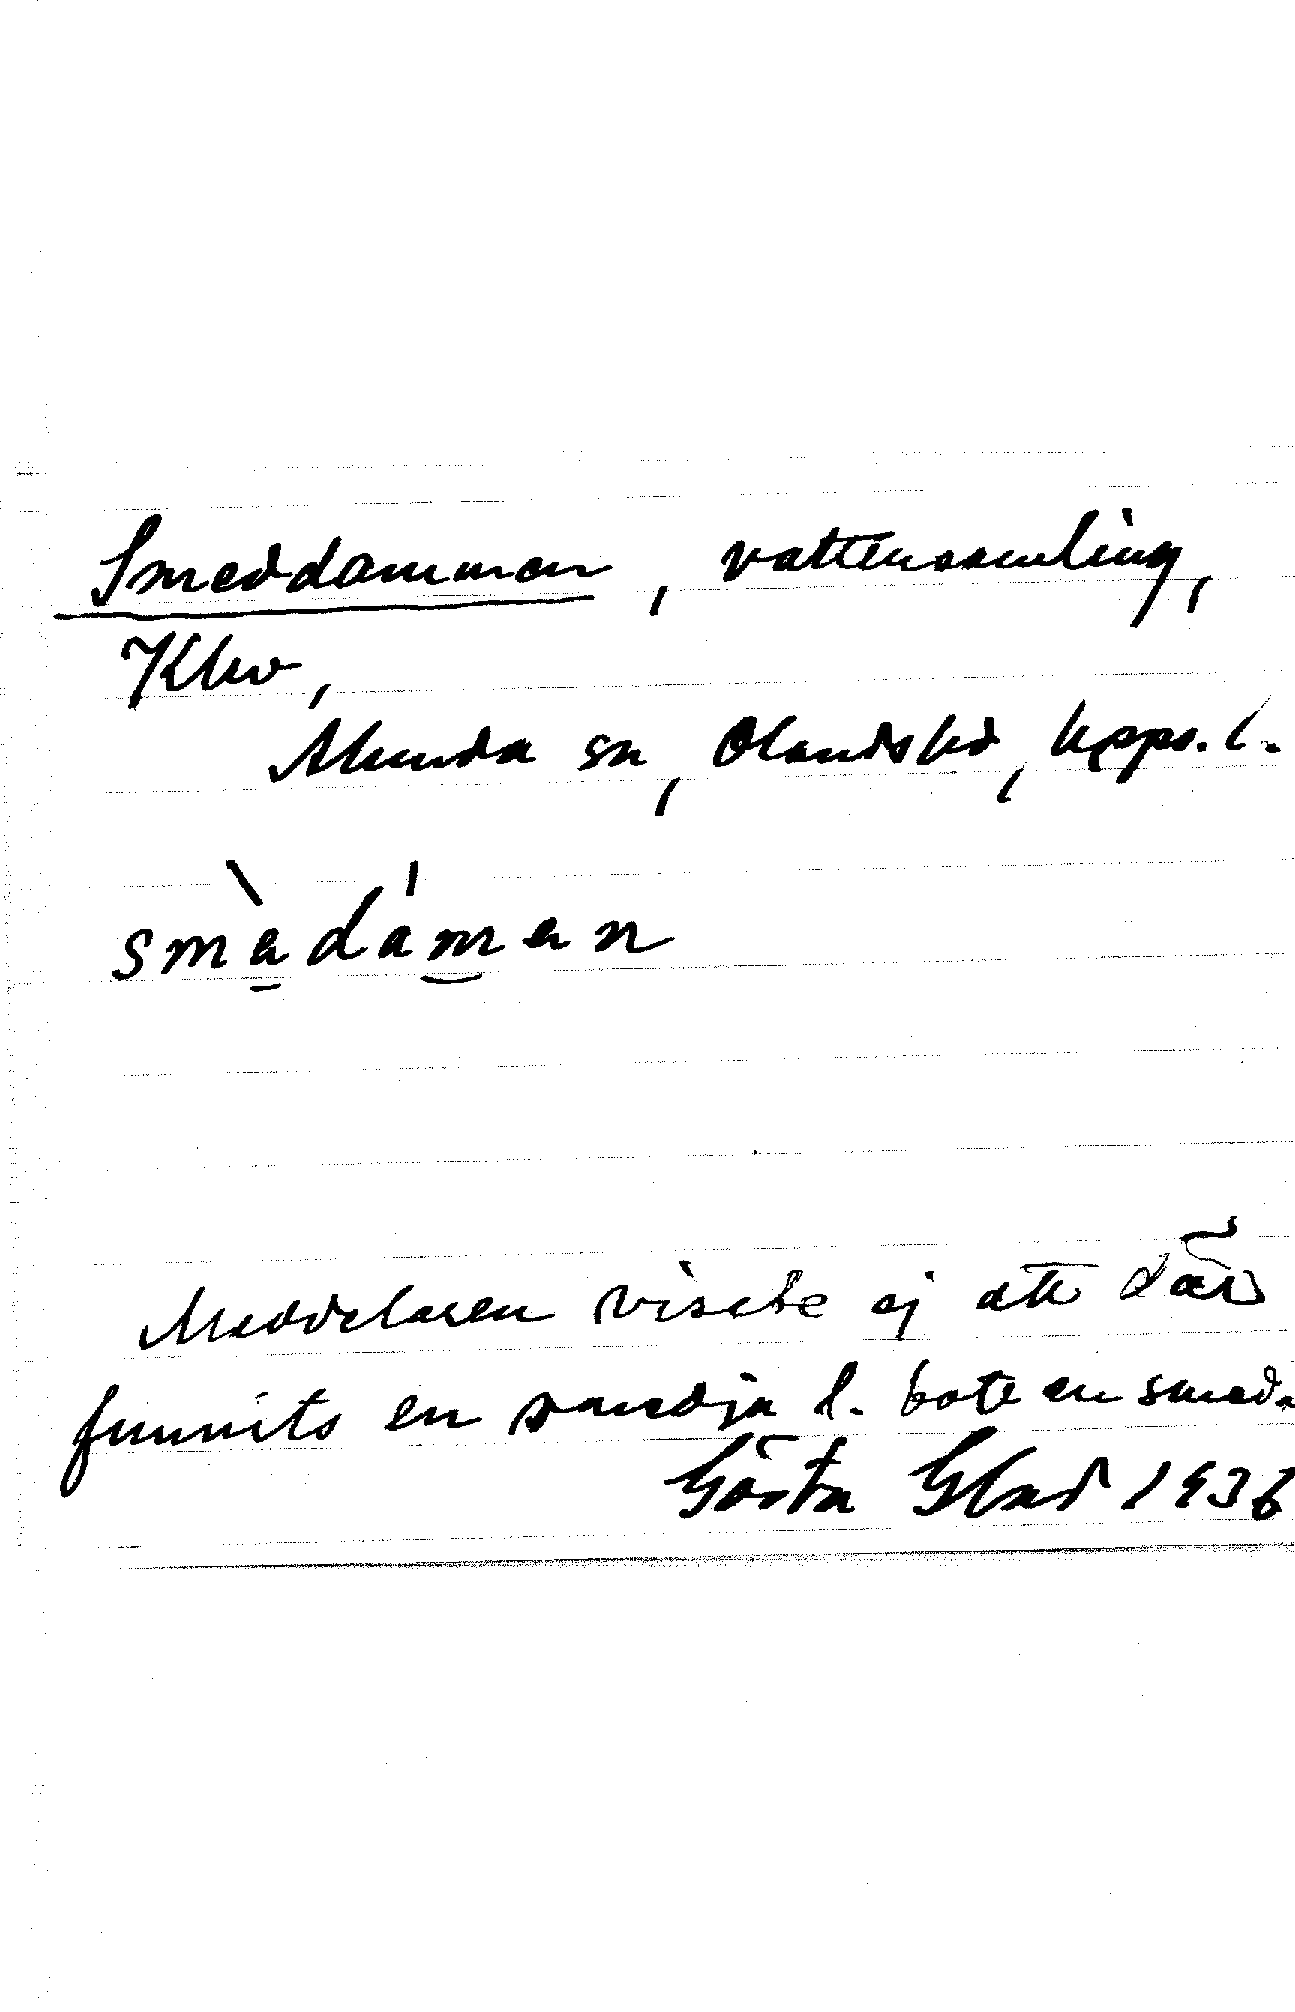 Smeddammen, vattensamling,
Klev,
Alunda sn, Olands hd, Upps. l.
smèdámen
Meddelaren visste ej att där
funnits en smedja l. bott en smed.
Gösta Glad 1936